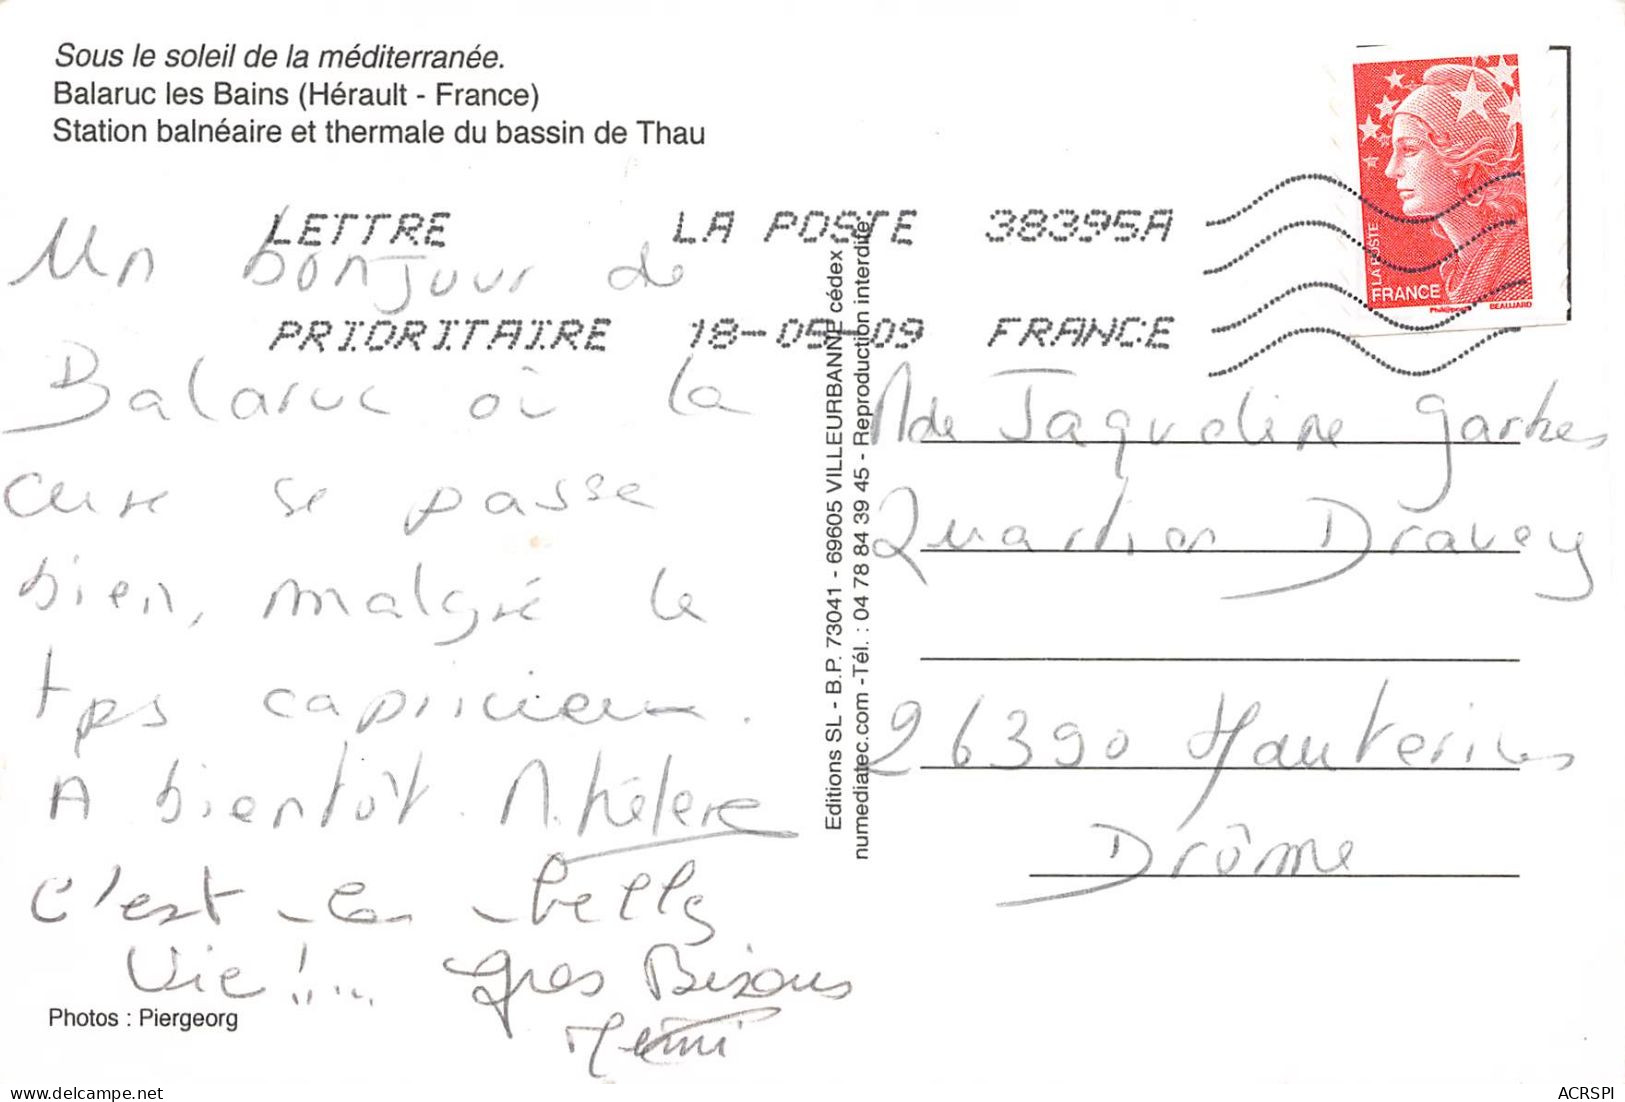 Sous le soleil de la méditerranée.
Balaruc les Bains (Hérault - France)
Station balnéaire et thermale du bassin de Thau
LETTRE LA POSTE 38395A
PRIORITAIRE 18-05-09 FRANCE
LA POSTE
FRANCE
BEAUJARD
Un bonjour de
Balaruc où la
cure se passe
bien, malgré le
tps capricieux.
A bientôt.
c'est la belle
vie !...
gros Bisous
Editions SL - B.P. 73041 - 69605 VILLEURBANNE cédex
numediatec.com - Tél. : 04 78 84 39 45 - Reproduction interdite
Mde Jaqueline
Quartier Dravey
26390 Hauterives
Drôme
Photos : Piergeorg
ACRSPI